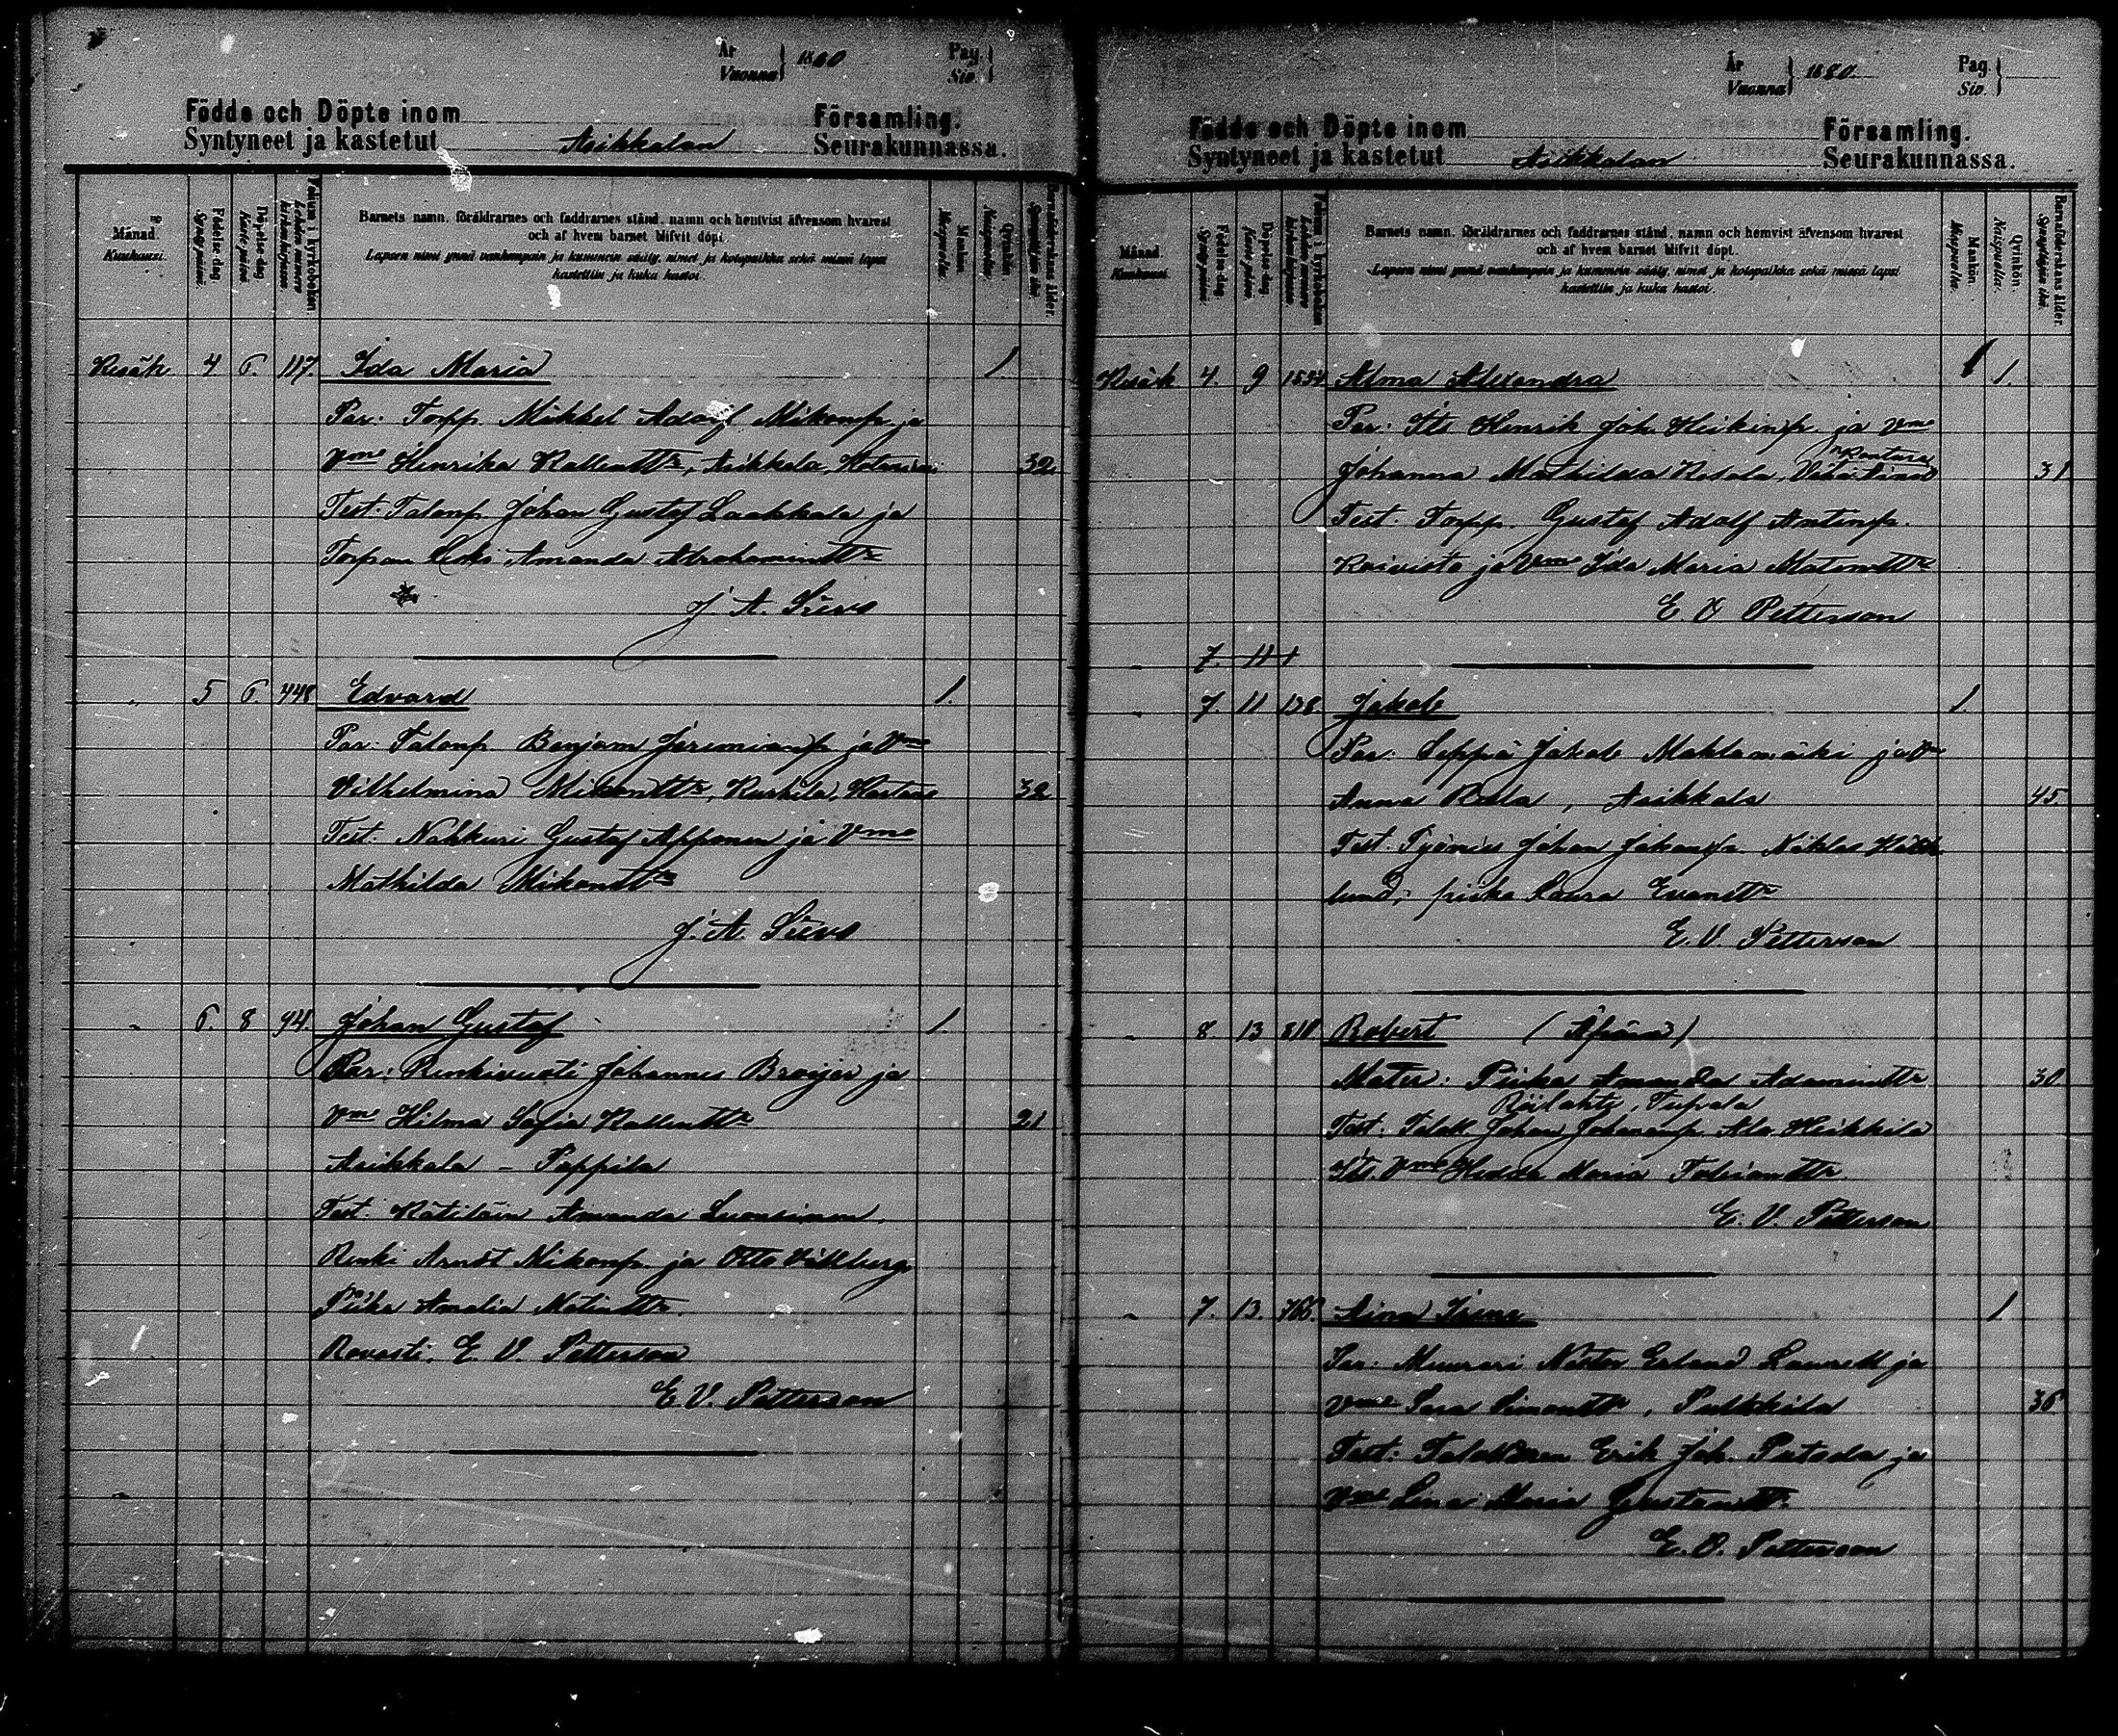 År
Vuonna } 1880
Pag.
Siv. }
Födde och Döpte inom Församling.
Syntyneet ja kastetut Asikkalan Seurakunnassa.
Månad.
Kuukausi.
Födelse-dag.
Syntymäpäivä.
Döpelse-dag.
Kastepäivä
Folium i kyrkoboken
Lehden numero kirkon kirjassa
Barnets namn, föräldrarnes och faddrarnes stånd, namn och hemvist äfvensom hvarest
och af hvem barnet blifvit döpt.
Lapsen nimi ynnä vanhempain ja kummein sääty, nimet ja kotopaikka sekä missä lapsi
kastettiin ja kuka kastoi.
Mankön.
Miespuolta.
Qvinkön.
Naispuolta.
Barnaföderskans ålder.
Synnyttäjän ikä.
Kesäk 4 6. 117. Ida Maria 1.
Par: Torpp. Mikkel Adolf Mikonp. ja
Vmo Henrika Kallentr, Asikkala, 32
Test. Talonp. Johan Gustaf Laakkala ja
Torpan Leski Amanda Abrahamintr
J. A. Sirvo
" 5 6. 448 Edvard 1.
Par: Talonp. Benjam Jeremianp. ja Vmo
Vilhelmina Mikontr, Kurhila, 32
Test: Nahkuri Gustaf Apponen ja Vmo
Mathilda Mikontr
J. A. Sirvo
" 6. 8 94. Johan Gustaf 1.
Par: Renkivuoti Johannes Broijer ja
Vmo Hilma Sofia Kallentr 21
Asikkala - Pappila
Test. Kätilöin Amanda Luonsinen.
Renki Arndt Mikonp. ja Otto Villberg
Piika Amalia Matintr.
Rovasti, E. V. Petterson
E. V. Petterson
År
Vuonna } 1880.
Pag.
Siv. }
Födde och Döpte inom Församling.
Syntyneet ja kastetut Asikkalan Seurakunnassa.
Månad.
Kuukausi.
Födelse-dag.
Syntymäpäivä.
Döpelse-dag.
Kastepäivä
Folium i kyrkoboken
Lehden numero kirkon kirjassa
Barnets namn, föräldrarnes och faddrarnes stånd, namn och hemvist äfvensom hvarest
och af hvem barnet blifvit döpt.
Lapsen nimi ynnä vanhempain ja kummein sääty, nimet ja kotopaikka sekä missä lapsi
kastettiin ja kuka kastoi.
Mankön.
Miespuolta.
Qvinkön.
Naispuolta.
Barnaföderskans ålder.
Synnyttäjän ikä.
Kesäk 4. 9 Alma Alexandra 1.
Par: Its Henrik Joh. Heikinp. ja Vmo
Johanna Mathilda Kosola, 31
Test. Torpp. Gustaf Adolf Antinp.
Koivisto ja Vmo Ida Maria Matintr
E. V Petterson
" 7. 11
" 7. 11 138 Jakob 1.
Par: Seppä Jakob Mahlamäki ja Vmo
Anna , Asikkala 45.
Test. Työmies Johan Johanp. Niklas
lund, piika Laura Evantr
E. V. Petterson
" 8. 13 818 Robert (Äpärä)
Mater: Piika Amanda Adamintr 30
Test: Johan Johananp. Ala Heikkilä
Its. Vmo Hedda Maria
E. V. Petterson
" 7. 13. 766. Aina Irene 1.
Par: Muurari Nestor Erland Laurell ja
Vmo Sara Simontr, Pulkkila 36
Test: Erik Joh. ja
Vmo Lina Maria Gustavtr.
E. V. Petterson